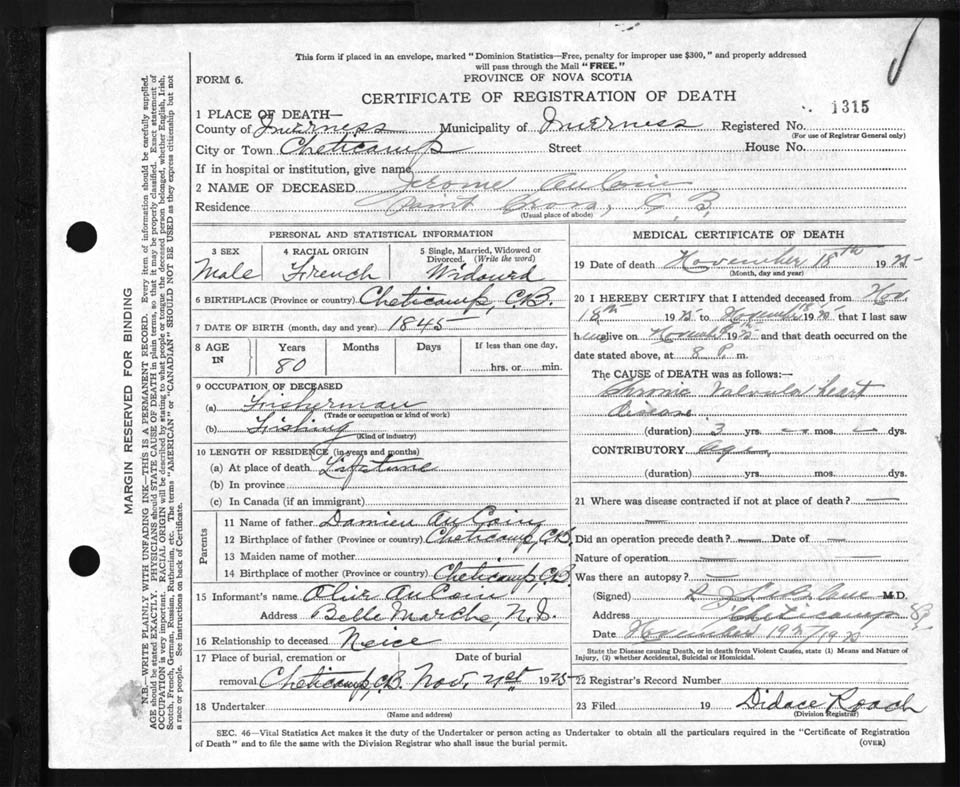 This form if placed in an envelope, marked "Dominion Statistics—Free, penalty for improper use $300," and properly addressed
will pass through the Mail "FREE."
FORM 6.
PROVINCE OF NOVA SCOTIA
CERTIFICATE OF REGISTRATION OF DEATH
1315
1 PLACE OF DEATH—
County of Inverness Municipality of Inverness Registered No.
(For use of Registrar General only)
City or Town Cheticamp Street House No.
If in hospital or institution, give name
2 NAME OF DECEASED Jerome AuCoin
Residence Cross, C. B.
(Usual place of abode)
PERSONAL AND STATISTICAL INFORMATION
3 SEX 4 RACIAL ORIGIN 5 Single, Married, Widowed or Divorced. (Write the word)
Male French Widowed
6 BIRTHPLACE (Province or country) Cheticamp, C.B.
7 DATE OF BIRTH (month, day and year) 1845
8 AGE IN Years Months Days If less than one day,
80 hrs. or min.
9 OCCUPATION OF DECEASED
(a) Fisherman
(Trade or occupation or kind of work)
(b) Fishing
(Kind of industry)
10 LENGTH OF RESIDENCE (in years and months)
(a) At place of death Lifetime
(b) In province
(c) In Canada (if an immigrant)
Parents
11 Name of father Damien AuCoin
12 Birthplace of father (Province or country) Cheticamp, C.B.
13 Maiden name of mother
14 Birthplace of mother (Province or country) Cheticamp, C.B.
15 Informant's name AuCoin
Address Belle Marche, N.S.
16 Relationship to deceased Neice
17 Place of burial, cremation or Date of burial
removal Cheticamp, C.B. Nov. 21st 1925
18 Undertaker
(Name and address)
MEDICAL CERTIFICATE OF DEATH
19 Date of Death November 18th 1925
(Month, day and year)
20 I HEREBY CERTIFY that I attended deceased from Nov.
18th 1925 to November 18 1925 that I last saw
h alive on November 1925 and that death occurred on the
date stated above, at 8 P. m.
The CAUSE OF DEATH was as follows:—
Chronic Valvular heart
disease
(duration) 3 yrs. — mos. — dys.
CONTRIBUTORY age
(duration) yrs. mos. dys.
21 Where was disease contracted if not at place of death? —
—
Did an operation precede death? — Date of —
Nature of operation —
Was there an autopsy? —
(Signed) M.D.
Address Cheticamp
Date November
State the Disease causing Death, or in death from Violent Causes, state (1) Means and Nature of
Injury, (2) whether Accidental, Suicidal or Homicidal.
22 Registrar's Record Number
23 Filed 19 Didace Roach
(Division Registrar)
SEC. 46—Vital Statistics Act makes it the duty of the Undertaker or person acting as Undertaker to obtain all the particulars required in the "Certificate of Registration
of Death" and to file the same with the Division Registrar who shall issue the burial permit.
(OVER)
MARGIN RESERVED FOR BINDING
N.B.—WRITE PLAINLY WITH UNFADING INK—THIS IS A PERMANENT RECORD. Every item of information should be carefully supplied.
AGE should be stated EXACTLY. PHYSICIANS should STATE CAUSE OF DEATH in plain terms, so that it may be properly classified. Exact statement of
OCCUPATION is very important. RACIAL ORIGIN will be described by stating to what people or tongue the deceased person belonged, whether English, Irish,
Scotch, French, German, Russian, Ruthenian, etc. The terms "AMERICAN" or "CANADIAN" SHOULD NOT BE USED as they express citizenship but not
a race or people. See instructions on back of Certificate.